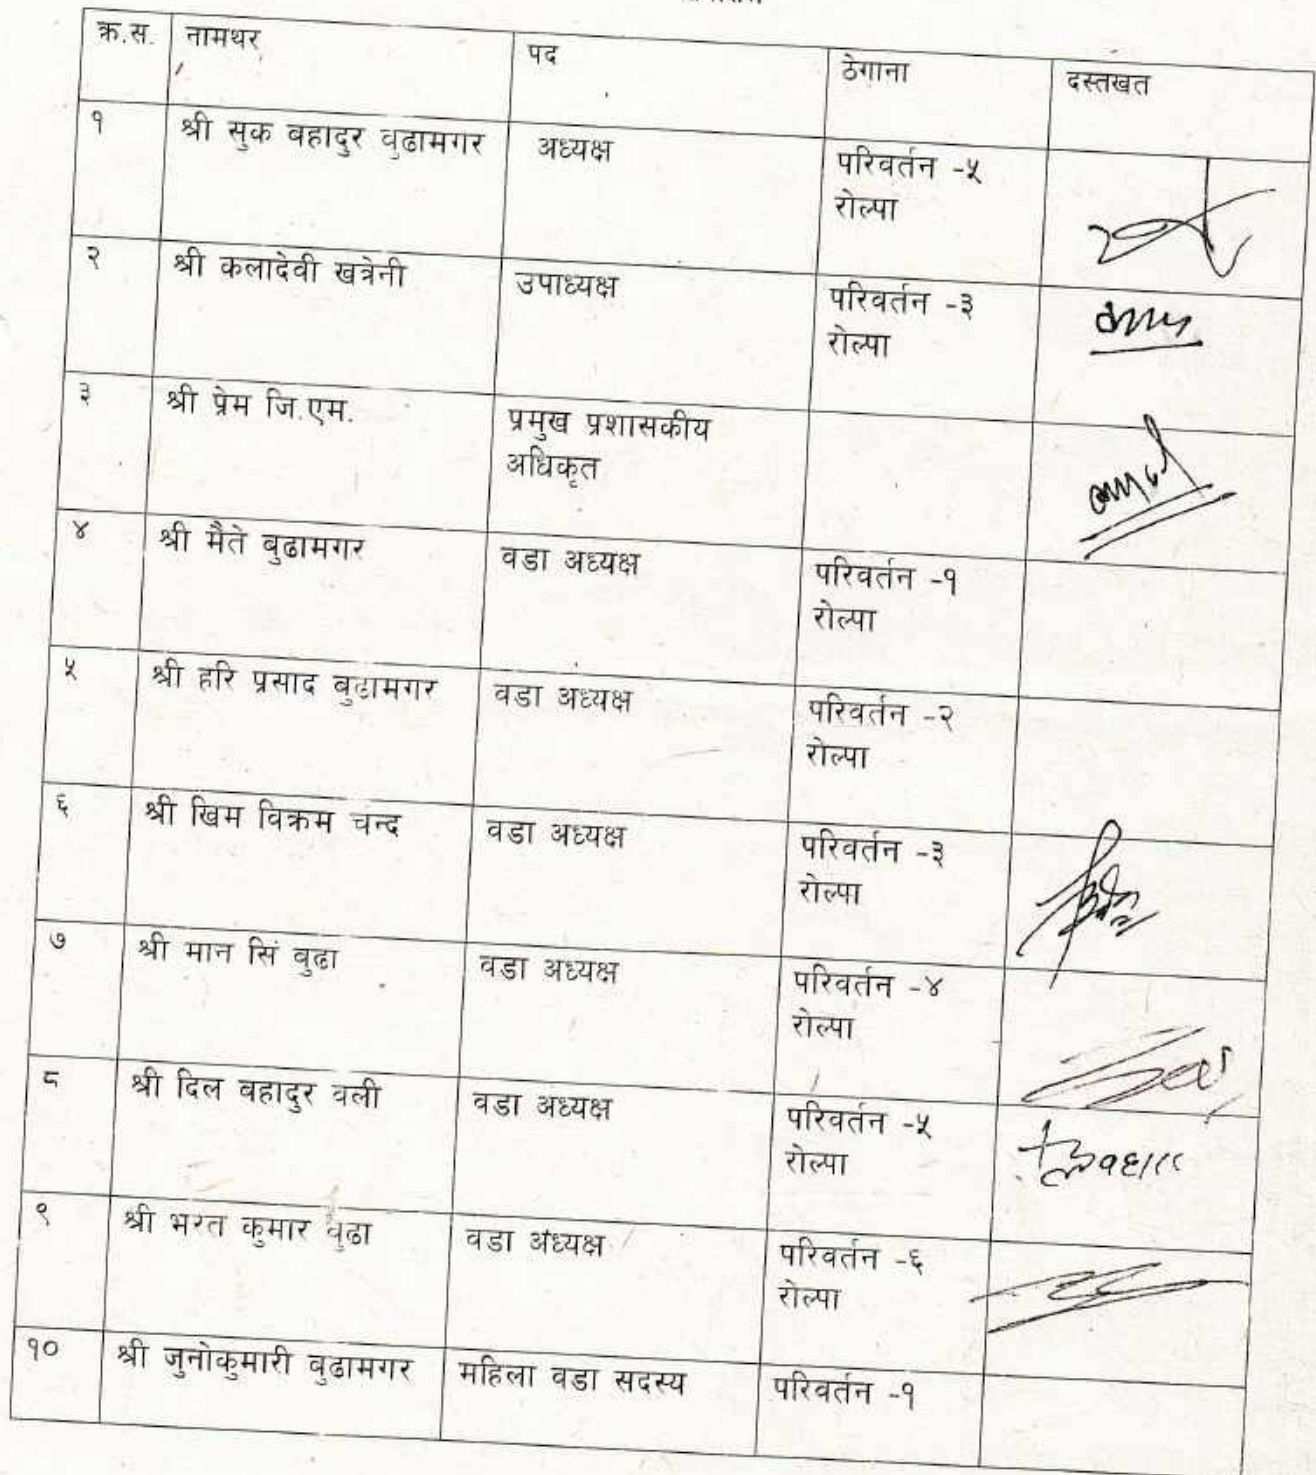 क्र.स. नामथर पद ठेगाना दस्तखत
१ श्री सुक बहादुर बुढामगर अध्यक्ष परिवर्तन -५
रोल्पा
२ श्री कलादेवी खत्रेनी उपाध्यक्ष परिवर्तन -३
रोल्पा
३ श्री प्रेम जि.एम. प्रमुख प्रशासकीय
अधिकृत
४ श्री मैते बुढामगर वडा अध्यक्ष परिवर्तन -१
रोल्पा
५ श्री हरि प्रसाद बुढामगर वडा अध्यक्ष परिवर्तन -२
रोल्पा
६ श्री खिम विक्रम चन्द वडा अध्यक्ष परिवर्तन -३
रोल्पा
७ श्री मान सिं बुढा वडा अध्यक्ष परिवर्तन -४
रोल्पा
८ श्री दिल बहादुर वली वडा अध्यक्ष परिवर्तन -५
रोल्पा
९ श्री भरत कुमार बुढा वडा अध्यक्ष परिवर्तन -६
रोल्पा
१० श्री जुनोकुमारी बुढामगर महिला वडा सदस्य परिवर्तन -१